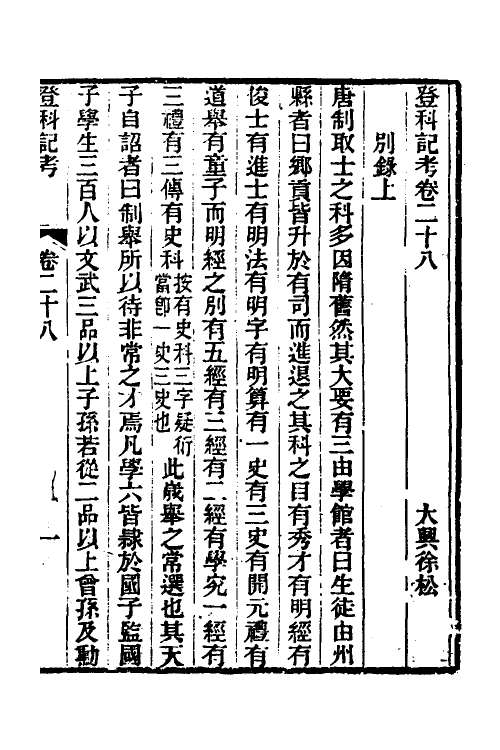 登科記考卷二十八　　大興徐松
別錄上
唐制取士之科多因隋舊然其大要有三由學館者曰生徒由州
縣者曰鄉貢皆升於有司而進退之其科之目有秀才有明經有
俊士有進士有明法有明字有明算有一史有三史有開元禮有
道舉有童子而明經之別有五經有三經有二經有學究一經有
三禮有三傳有史科按有史科三字疑衍當卽一史三史也此歲舉之常選也其天
子自詔者曰制舉所以待非常之才焉凡學六皆隸於國子監國
子學生三百人以文武三品以上子孫若從二品以上曾孫及勳
登科記考　卷二十八　一